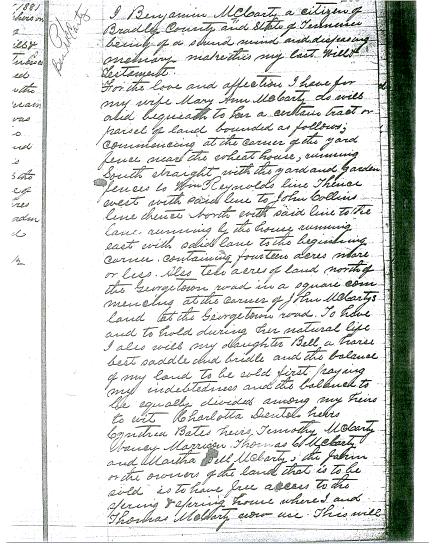 1881
Ben McCarty
I Benjamin McCarty a citizen of
Bradley County and State of Tennessee
being of a sound mind and disposing
memory make this my last Will &
Testament.
For the love and affection I have for
my wife Mary Ann McCarty do will
and bequeath to her a certain tract or
parcel of land bounded as follows;
commencing at the corner of the yard
fence near the wheat house, running
South straight with the yard and garden
fences to Wm Reynolds line Thence
west with said line to John Collins
line thence North with said line to the
lane running by the house running
east with said lane to the beginning
corner containing fourteen acres more
or less. Also ten acres of land north of
the Georgetown road in a square com
mencing at the corner of John McCartys
land at the Georgetown road. To have
and to hold during her natural life
I also will my daughter Bell a horse
best saddle and bridle and the balance
of my land to be sold first paying
my indebtedness and the balance to
be equally divided among my heirs
to wit Charlotta Denton heirs
Cynthia Bates heirs, Timothy McCarty
Nancy Morrison Thomas McCarty
and Martha Bell McCarty & the
or the owners of the land that is to be
sold is to have free access to the
spring & spring house where I and
Thomas McCarty now use. This will